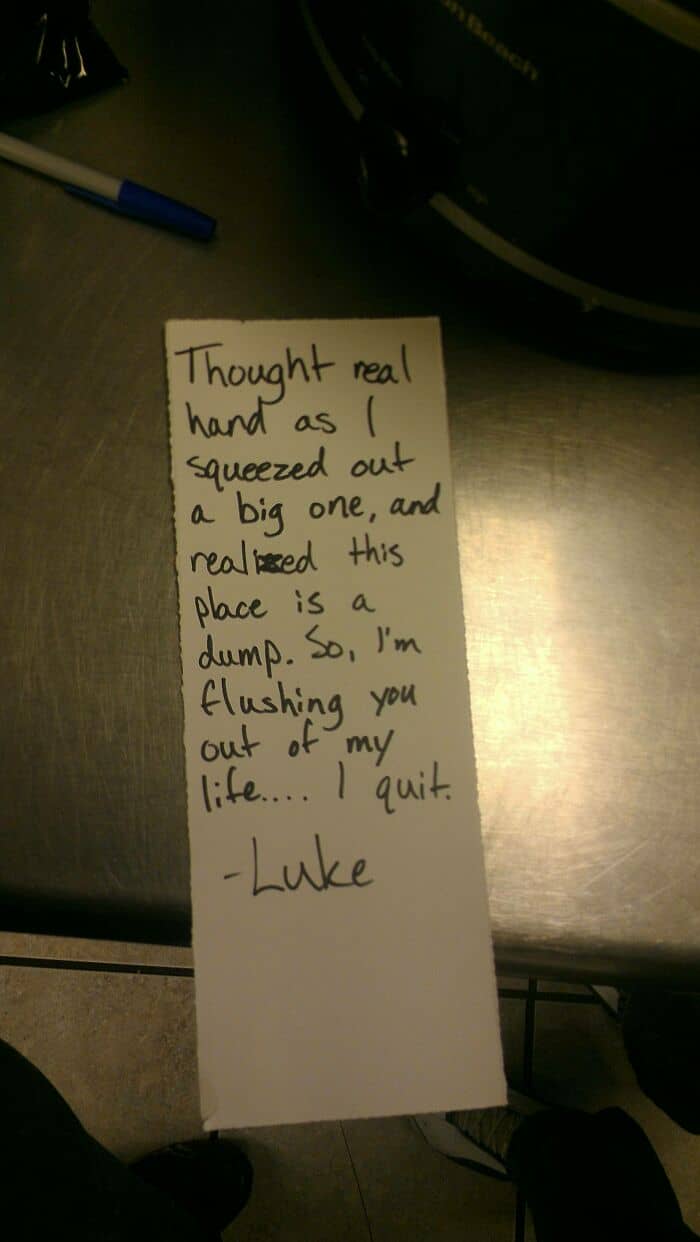 n Beach
Thought real
hand as I
squeezed out
a big one, and
realized this
place is a
dump. So, I'm
flushing you
out of my
life.... I quit.
-Luke